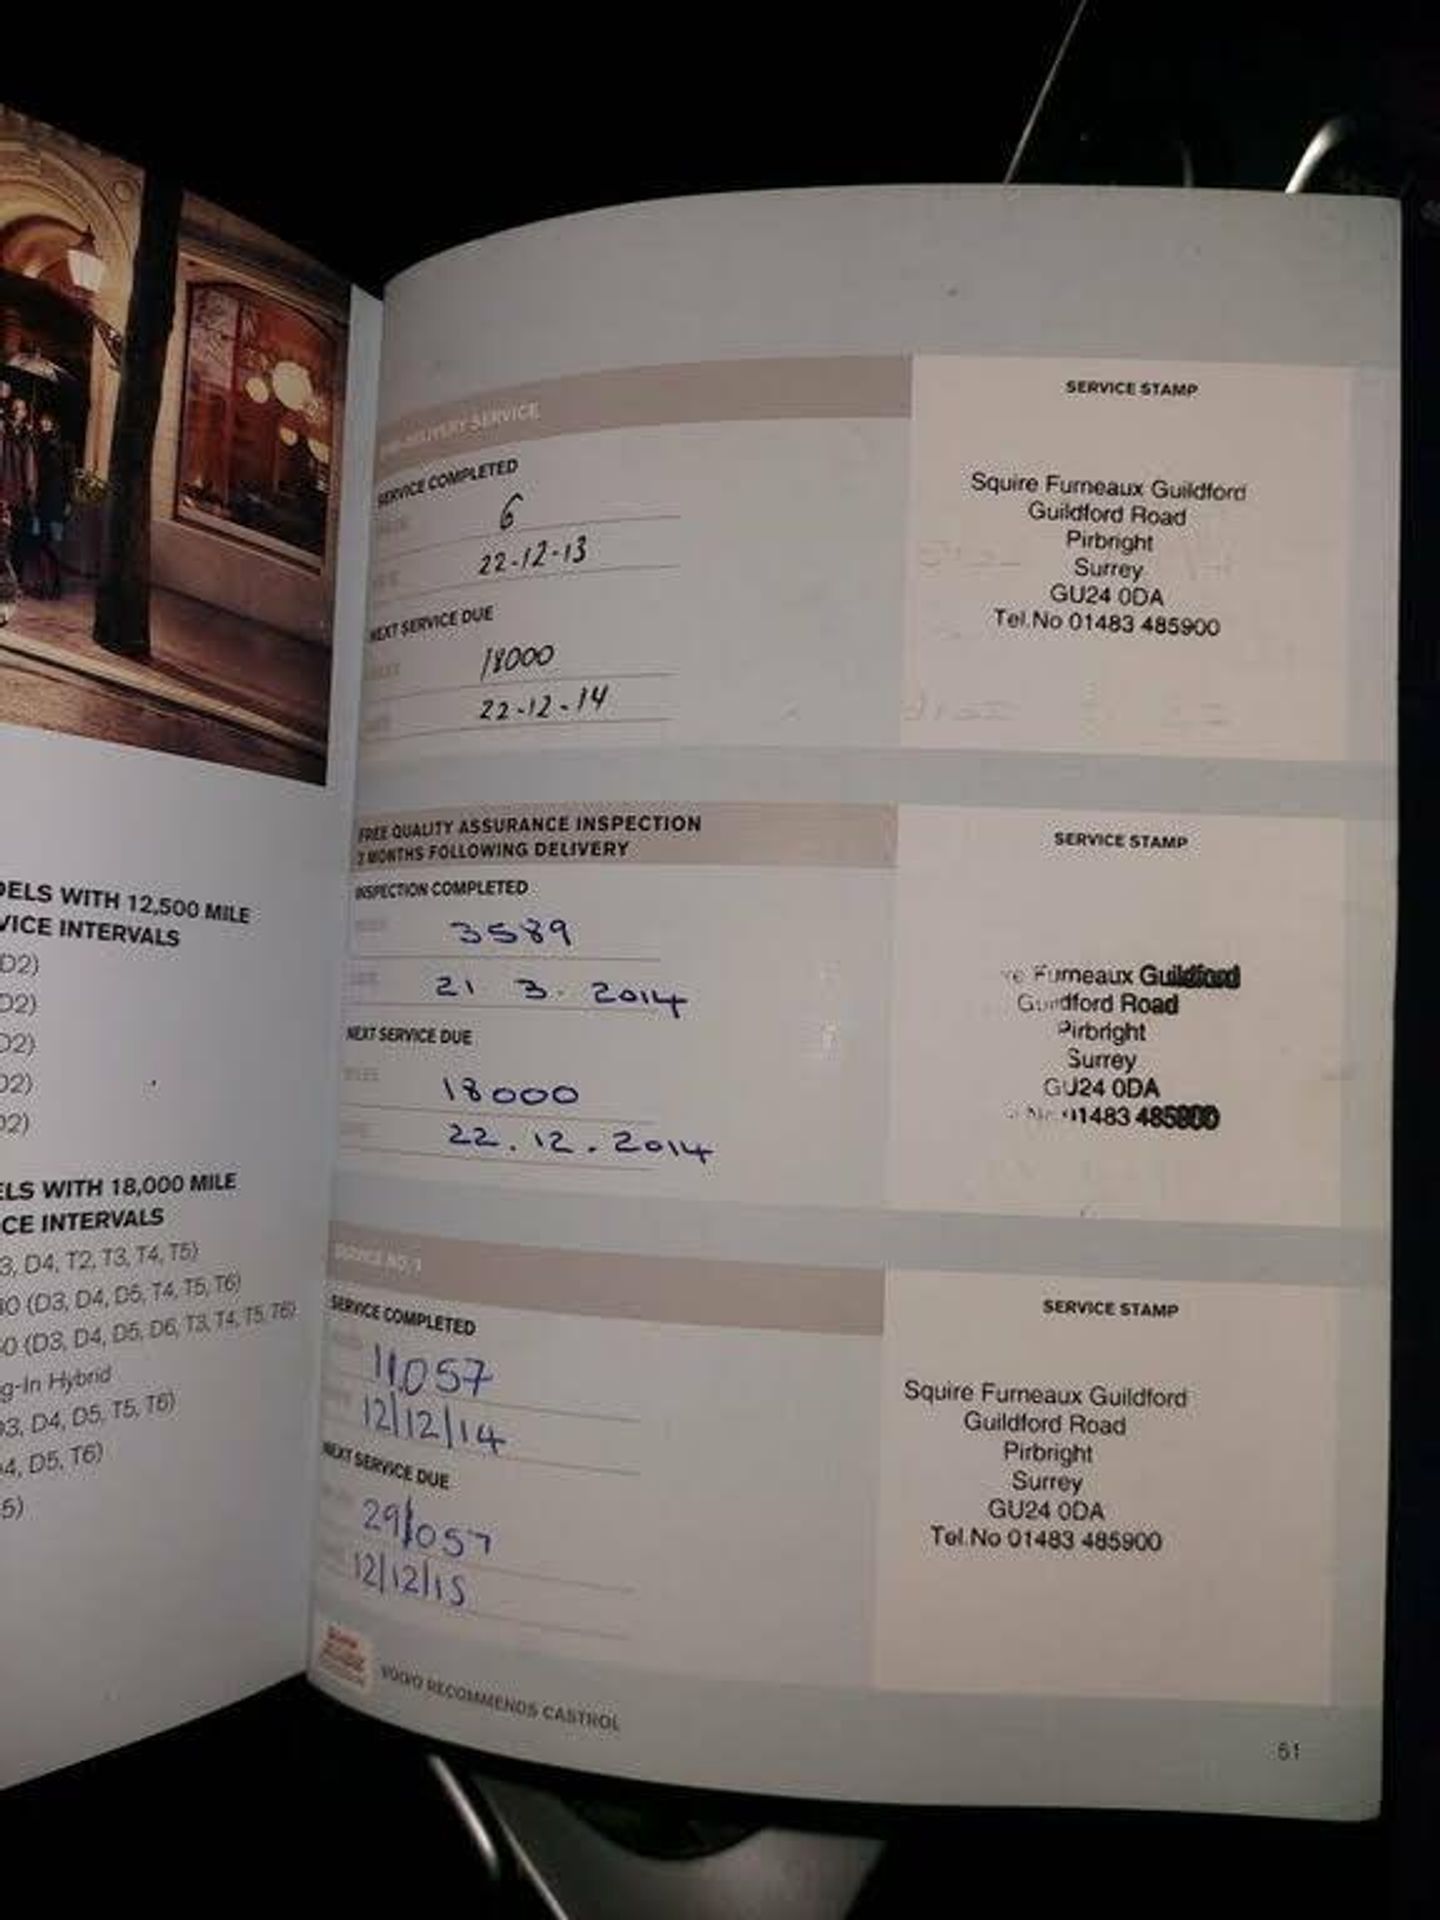 DELS WITH 12,500 MILE
VICE INTERVALS
D2)
D2)
D2)
D2)
D2)
ELS WITH 18,000 MILE
CE INTERVALS
3, D4, T2, T3, T4, T5)
(D3, D4, D5, T4, T5, T6)
(D3, D4, D5, D6, T3, T4, T5, T6)
g-In Hybrid
D3, D4, D5, T5, T6)
D4, D5, T6)
5)
PRE-DELIVERY SERVICE
SERVICE COMPLETED
MILES 6
DATE 22-12-13
NEXT SERVICE DUE
MILES 18000
DATE 22-12-14
SERVICE STAMP
Squire Furneaux Guildford
Guildford Road
Pirbright
Surrey
GU24 0DA
Tel.No 01483 485900
FREE QUALITY ASSURANCE INSPECTION
3 MONTHS FOLLOWING DELIVERY
INSPECTION COMPLETED
MILES 3589
DATE 21 3. 2014
NEXT SERVICE DUE
MILES 18000
DATE 22.12.2014
SERVICE STAMP
re Furneaux Guildford
Guildford Road
Pirbright
Surrey
GU24 0DA
No 01483 485900
SERVICE NO 1
SERVICE COMPLETED
11057
12/12/14
NEXT SERVICE DUE
29/057
12/12/15
SERVICE STAMP
Squire Furneaux Guildford
Guildford Road
Pirbright
Surrey
GU24 0DA
Tel.No 01483 485900
VOLVO RECOMMENDS CASTROL
51